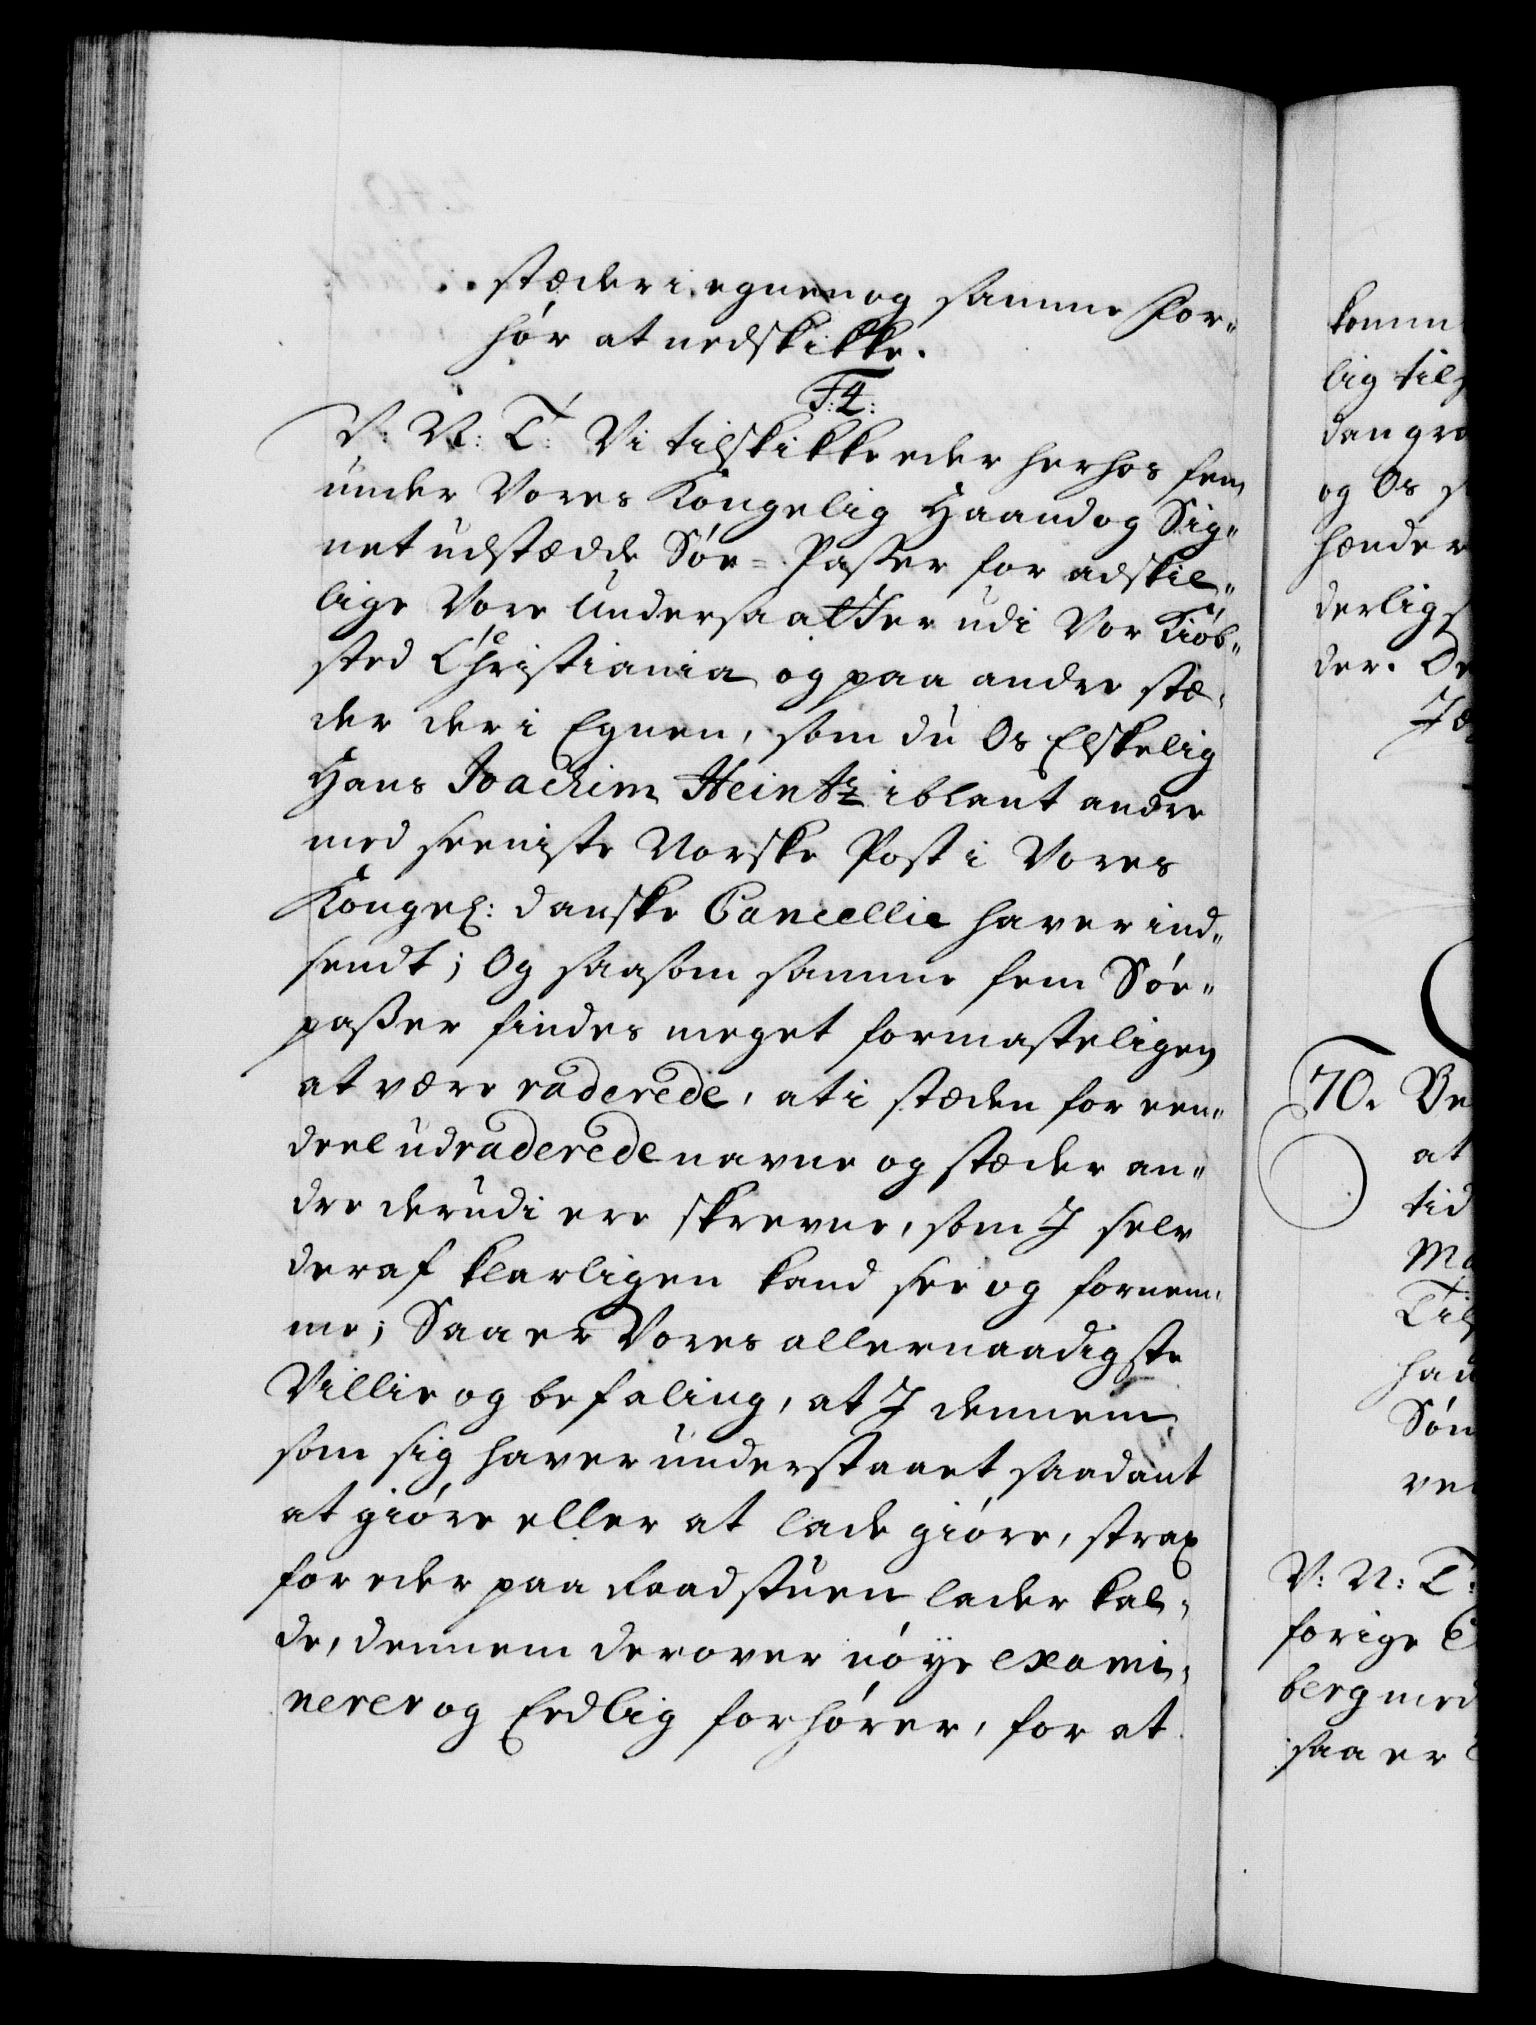 stæder i egnen og samme For-
hør at nedskikke.
F:4:
V: N: T: Vi tilskikke eder herhos fem
under Vores Kongelig Haand og Sig-
net udstædde Søe-Passer for adskil-
lige Vore Undersaatter udi Vor Kiøb-
sted Christiania og paa andre stæ-
der der i Egnen, som du Os Elskelig
Hans Joachim Heintz iblant andre
med seeniste Norske Post i Vores
Kongel: danske Cancellie haver ind-
sendt; Og saasom samme fem Søe-
passer findes meget formasteligen
at være raderede, at i stæden for een-
deel udraderede navne og stæder an-
dre derudi ere skrevne, som I selv
deraf klarligen kand see og fornem-
me; Saa er Vores allernaadigste
Villie og befaling, at I dennem
som sig haver understaaet saadant
at giøre eller at lade giøre, strax
for eder paa Raadstuen lader kal-
de, dennem derover nøye exami-
nerer og Eedlig forhører, for at
komm
lig til
dan gra
og Os
hænder
derlig
der. De
70. Be
at
tid
Ma
Til
han
Søn
ve
V: N: T:
forige
berg med
saa er